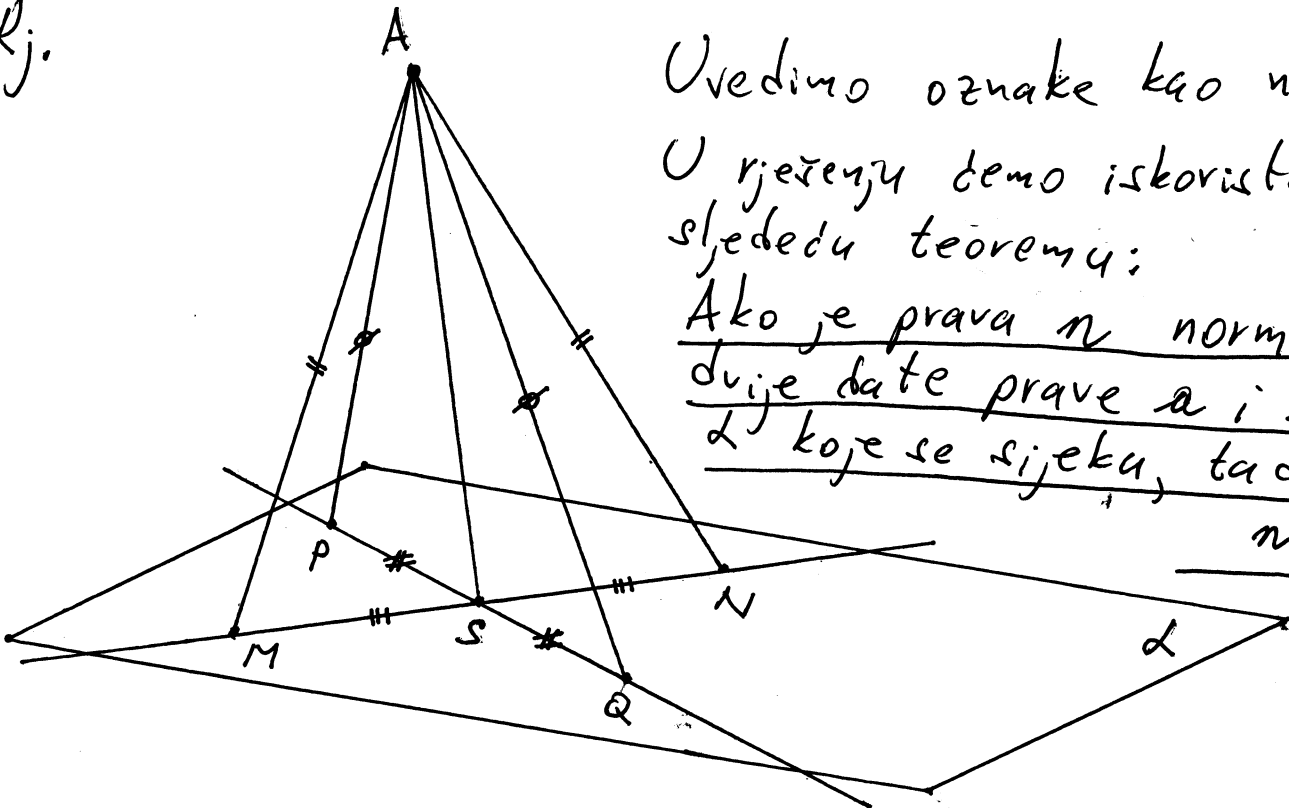 Rj.
A
Uvedimo oznake kao n
U rješenju ćemo iskorist
sljedeću teoremu:
Ako je prava n norm
dvije date prave a i
α koje se sijeku, tad
n
P
M
S
N
Q
α